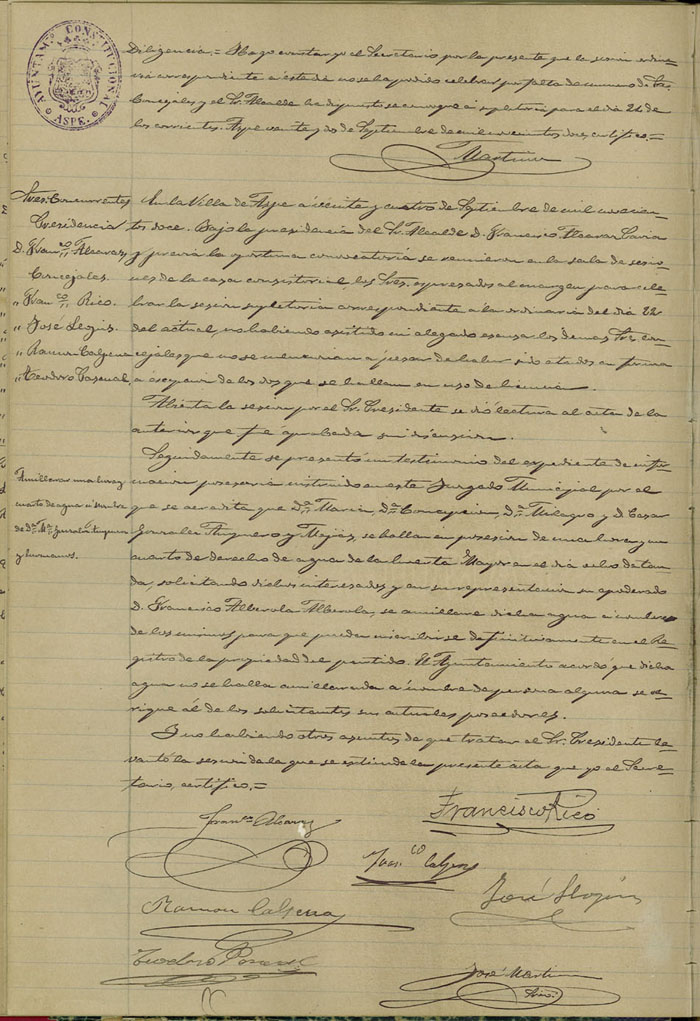 AYUNTAMTO CONSTITUCIONAL
ASPE.
Diligencia.= Hago constar yo el Secretario por la presente que la sesion ordina-
ria correspondiente a este dia no se ha podido celebrar por falta de numero de Sres
Concejales y el Sr. Alcalde ha dispuesto se convoque a supletoria para el dia 24 de
los corrientes. Aspe veinte y dos de Septiembre de mil novecientos doce, certifico.=
Martinez
Sres. Concurrentes
Presidencia
D. Franco Alcaraz
Concejales
" Franco Rico.
" José Llopis.
" Ramon Calpena
" Teodoro Pascual
En la Villa de Aspe a veinte y cuatro de Septiembre de mil novecien-
tos doce. Bajo la presidencia del Sr. Alcalde D. Francisco Alcaraz
y previa la oportuna convocatoria se reunieron en la sala de sesio-
nes de la casa consistorial, los Sres. expresados al margen para cele-
brar la sesion supletoria correspondiente a la ordinaria del dia 22
del actual, no habiendo asistido ni alegado escusa los demas Sres. con-
cejales que no se mencionan a pesar de haber sido citados en forma
a escepcion de los dos que se hallan en uso de licencia.
Abierta la sesion por el Sr. Presidente se dió lectura al acta de la
anterior que fué aprobada sin discusion.
Amillarar una hora y
cuarto de agua a nombre
de Da. Ma. Gonzalez
y hermanos.
Seguidamente se presentó un testimonio del expediente de infor-
macion posesoria instruido en este Juzgado Municipal por el
que se acredita que Da. Maria, Da. Concepcion, Da. Milagro y D. Cesar
Gonzalez y Mejias, se hallan en posesion de una hora y un
cuarto de derecho de agua de la huerta Mayor en el dia ocho de tan-
da, solicitando dichos interesados y en su representacion su apoderado
D. Francisco Alberola Alberola, se amillare dicha agua a nombre
de los mismos para que pueda inscribirse definitivamente en el Re-
gistro de la propiedad del partido. El Ayuntamiento acordó que dicha
agua no se halla amillarada a nombre de persona alguna se
al de los solicitantes sus actuales poseedores.
Y no habiendo otros asuntos de que tratar el Sr. Presidente le-
vantó la sesion de la que se estiende la presente acta que yo el Secre-
tario, certifico.=
Franco Alcaraz
Francisco Rico
Franco Calpena
José Llopis
Ramon Calpena
Teodoro Pascual
José Martinez
Srio.